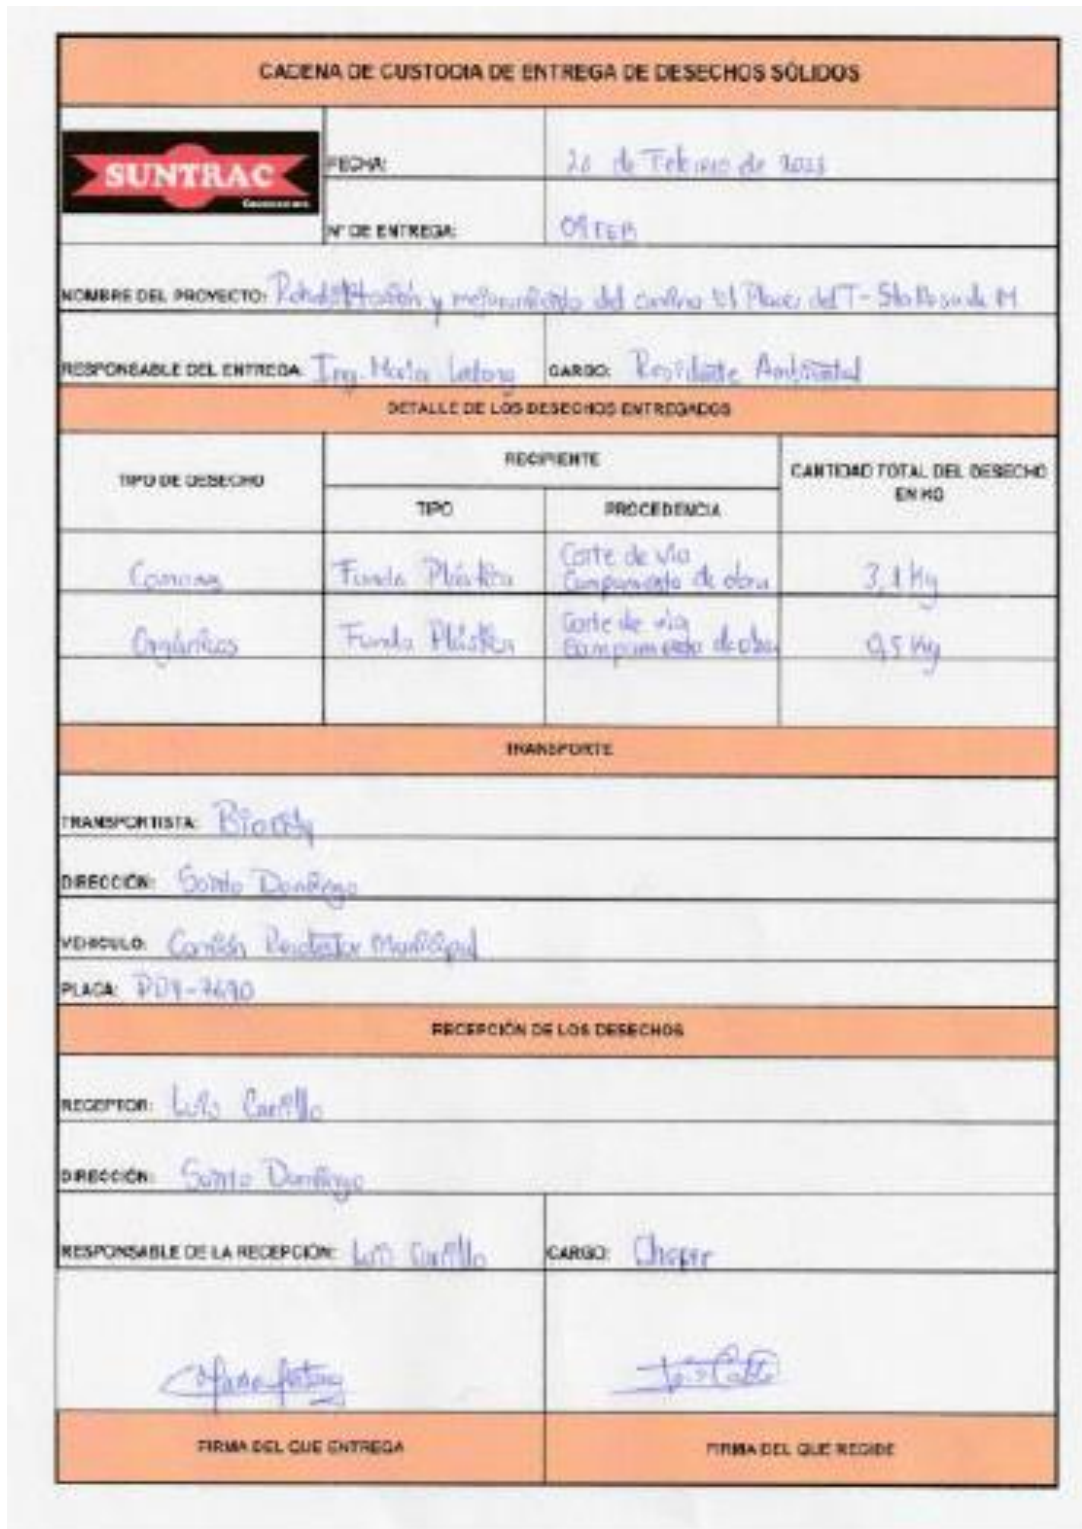 CADENA DE CUSTODIA DE ENTREGA DE DESECHOS SÓLIDOS
SUNTRAC
FECHA: de Febrero de
N° DE ENTREGA:
NOMBRE DEL PROYECTO: Rehabilitación y mejoramiento del camino
RESPONSABLE DEL ENTREGA: Ing. María CARGO: Residente Ambiental
DETALLE DE LOS DESECHOS ENTREGADOS
TIPO DE DESECHO
RECIPIENTE
CANTIDAD TOTAL DEL DESECHO EN KG
TIPO
PROCEDENCIA
Comunes Funda Plástica Corte de vía Campamento de obra 3,1 Kg
Orgánicos Funda Plástica Corte de vía Campamento de obra 0,5 Kg
TRANSPORTE
TRANSPORTISTA:
DIRECCIÓN: Santo Domingo
VEHICULO: Camión Recolector Municipal
PLACA:
RECEPCIÓN DE LOS DESECHOS
RECEPTOR: Luis Carrillo
DIRECCIÓN: Santo Domingo
RESPONSABLE DE LA RECEPCIÓN: Luis Carrillo CARGO: Chofer
FIRMA DEL QUE ENTREGA
FIRMA DEL QUE RECIBE